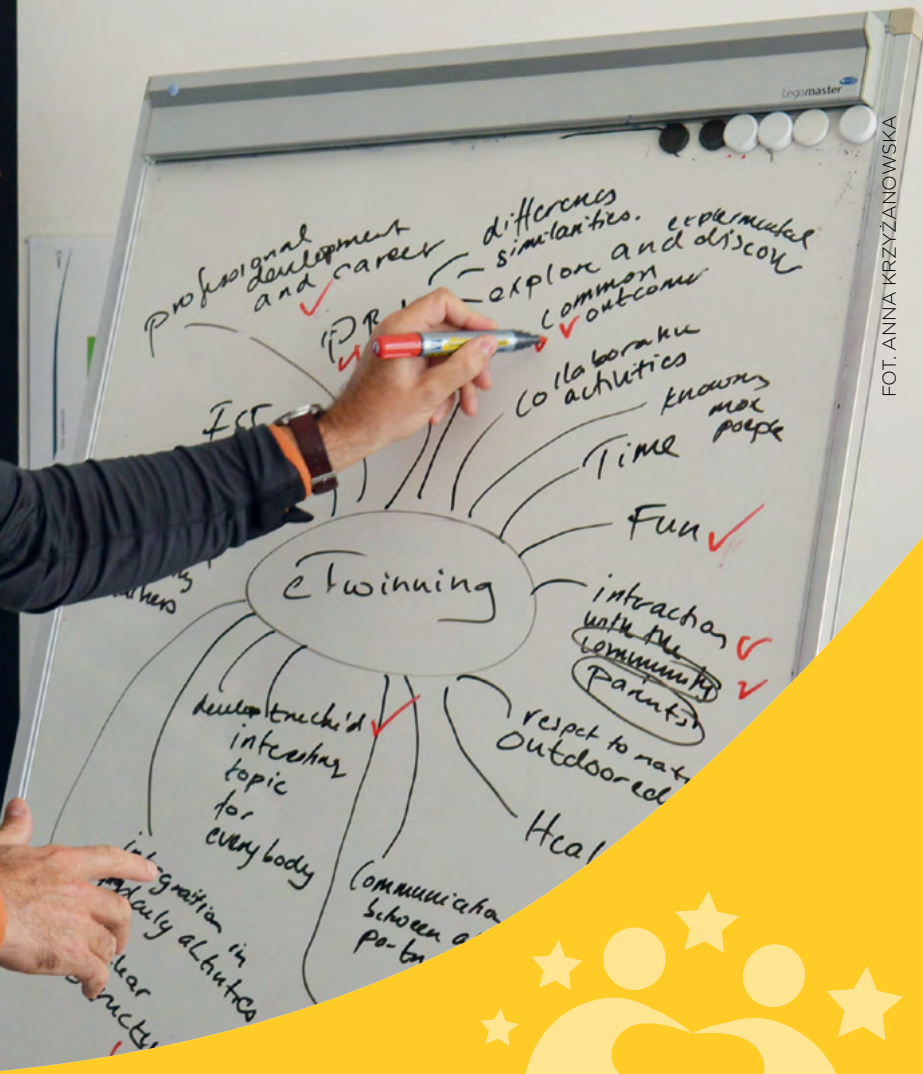 Legamaster
FOT. ANNA KRZYŻANOWSKA
professional
development
and career
differences
similarities.
explore and discov
common
outcomes
collaborative
activities
knowing
more
people
Time
Fun
eTwinning
interaction
with the
community
parents
respect to
outdoored
Heal
interesting
topic
for
everybody
communication
between
integration in
daily activities